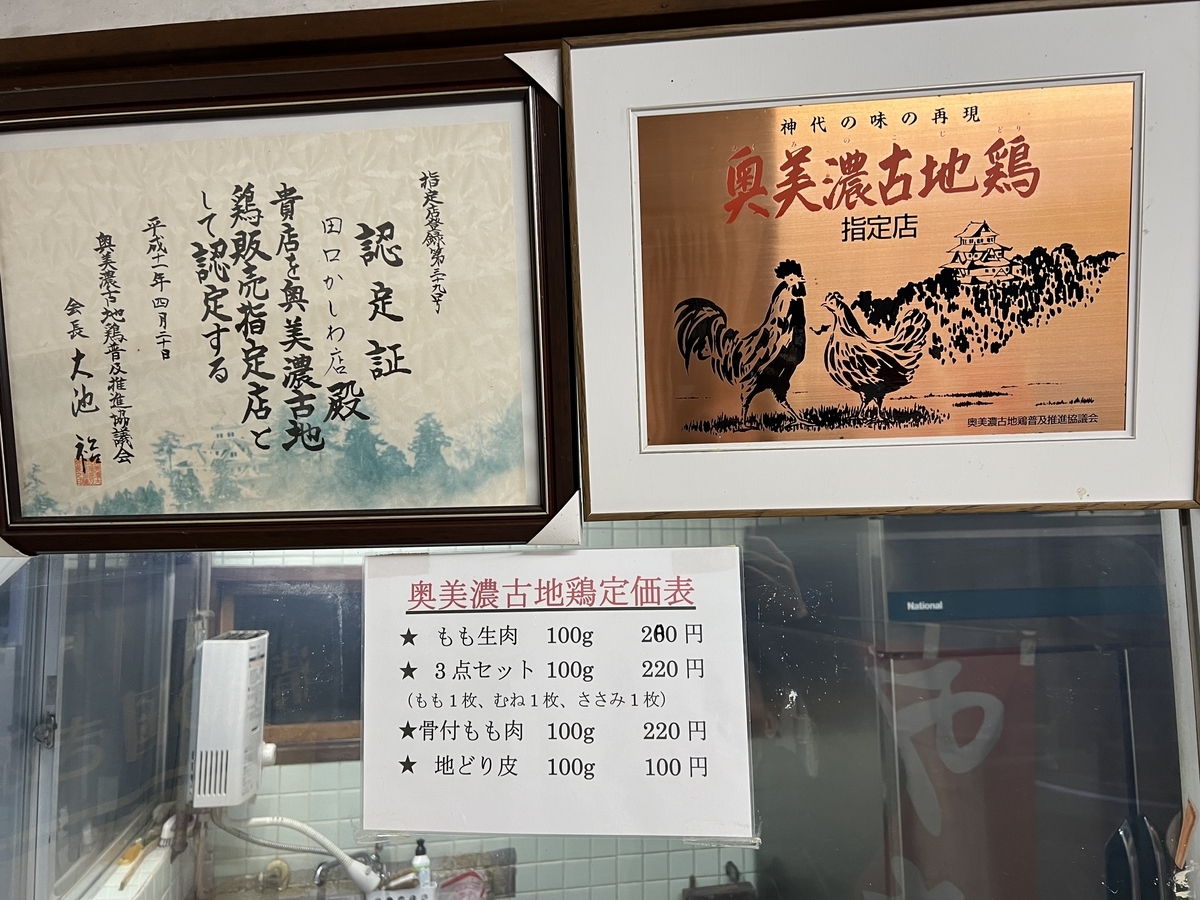 指定店登録第三十九号
認定証
田口かしわ店殿
貴店を奥美濃古地
鶏販売指定店と
して認定する
平成十一年四月二十日
奥美濃古地鶏普及推進協議会
会長 大池 裕
神代の味の再現
奥美濃古地鶏
指定店
奥美濃古地鶏普及推進協議会
奥美濃古地鶏定価表
★ もも生肉 100g 円
★ 3点セット 100g 220円
（もも1枚、むね1枚、ささみ1枚）
★骨付もも肉 100g 220円
★ 地どり皮 100g 100円
National